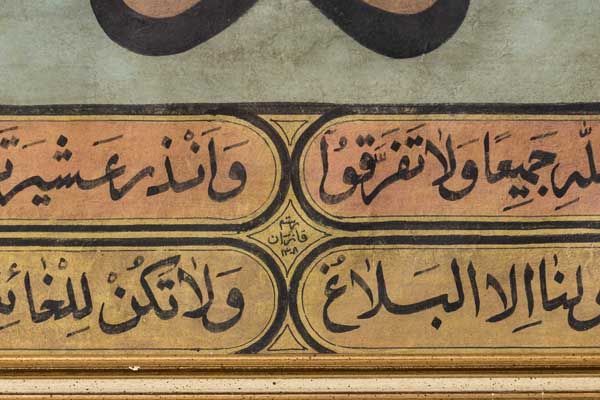 لله جَمِيعًا وَلاَ تَفَرَّقُوا
وَاَنْذِر عَشِيرَتَ
ولنا اِلا البَلاَغُ
وَلاَ تَكُنْ لِلْخَائِ